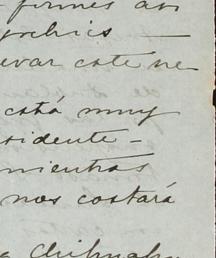 firmes as
evar este ne
está muy
sidente —
mientras
nos costará
Chihuahu